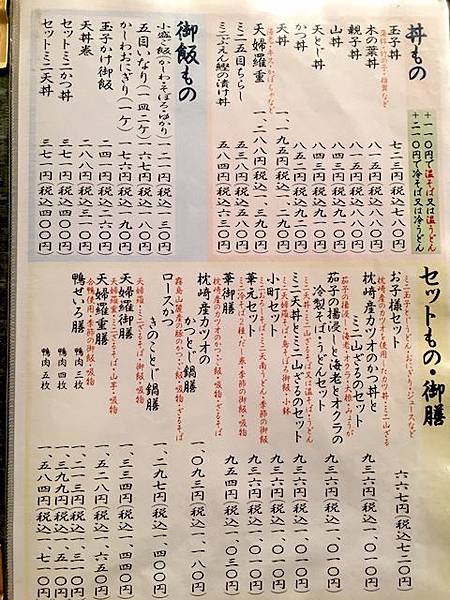 丼もの
+一一〇円で温そば又は温うどん
+二一〇円で冷そば又は冷うどん
玉子丼 七二三円(税込七八〇円)
木の葉丼 八一五円(税込八八〇円)
親子丼 八一五円(税込八八〇円)
山菜丼 八四三円(税込九一〇円)
天とじ丼 八四三円(税込九一〇円)
かつ丼 八五二円(税込九二〇円)
天丼 一、一九五円(税込一、二九〇円)
天婦羅重 一、二八八円(税込一、三九〇円)
ミニ五目ちらし 五三八円(税込五八〇円)
御飯もの
小盛ご飯(かしわ・そぼろ・ゆかり) 一二一円(税込一三〇円)
五目いなり(一皿二ケ) 一六七円(税込一八〇円)
かしわおにぎり(一ケ) 一七六円(税込一九〇円)
玉子かけ御飯 二四一円(税込二六〇円)
天丼巻 二八八円(税込三一〇円)
セットミニかつ丼 三七一円(税込四〇〇円)
セットミニ天丼 三七一円(税込四〇〇円)
セットもの・御膳
お子様セット 六六七円(税込七二〇円)
ミニ玉子丼とミニうどん・おにぎり・ジュースなど
枕崎産カツオのかつ丼と
ミニ山ざるのセット 九三六円(税込一、〇一〇円)
枕崎産のカツオを使用したカツ丼・ミニ山ざる
茄子の揚浸しと海老とオクラの
冷製そば・うどんセット 九三六円(税込一、〇一〇円)
ミニ天丼とミニ山ざるのセット 九三六円(税込一、〇一〇円)
小町セット 九三六円(税込一、〇一〇円)
華元セット 九五四円(税込一、〇三〇円)
華御膳 九五四円(税込一、〇三〇円)
枕崎産カツオの
かつとじ鍋膳 一、〇九三円(税込一、一八〇円)
ロースかつ
きのことじ鍋膳 一、二九七円(税込一、四〇〇円)
天婦羅御膳 一、三三四円(税込一、四四〇円)
天婦羅重膳 一、五二八円(税込一、六五〇円)
鴨せいろ膳 鴨肉三枚 一、二一三円(税込一、三一〇円)
鴨肉四枚 一、三九九円(税込一、五一〇円)
鴨肉五枚 一、五八四円(税込一、七一〇円)